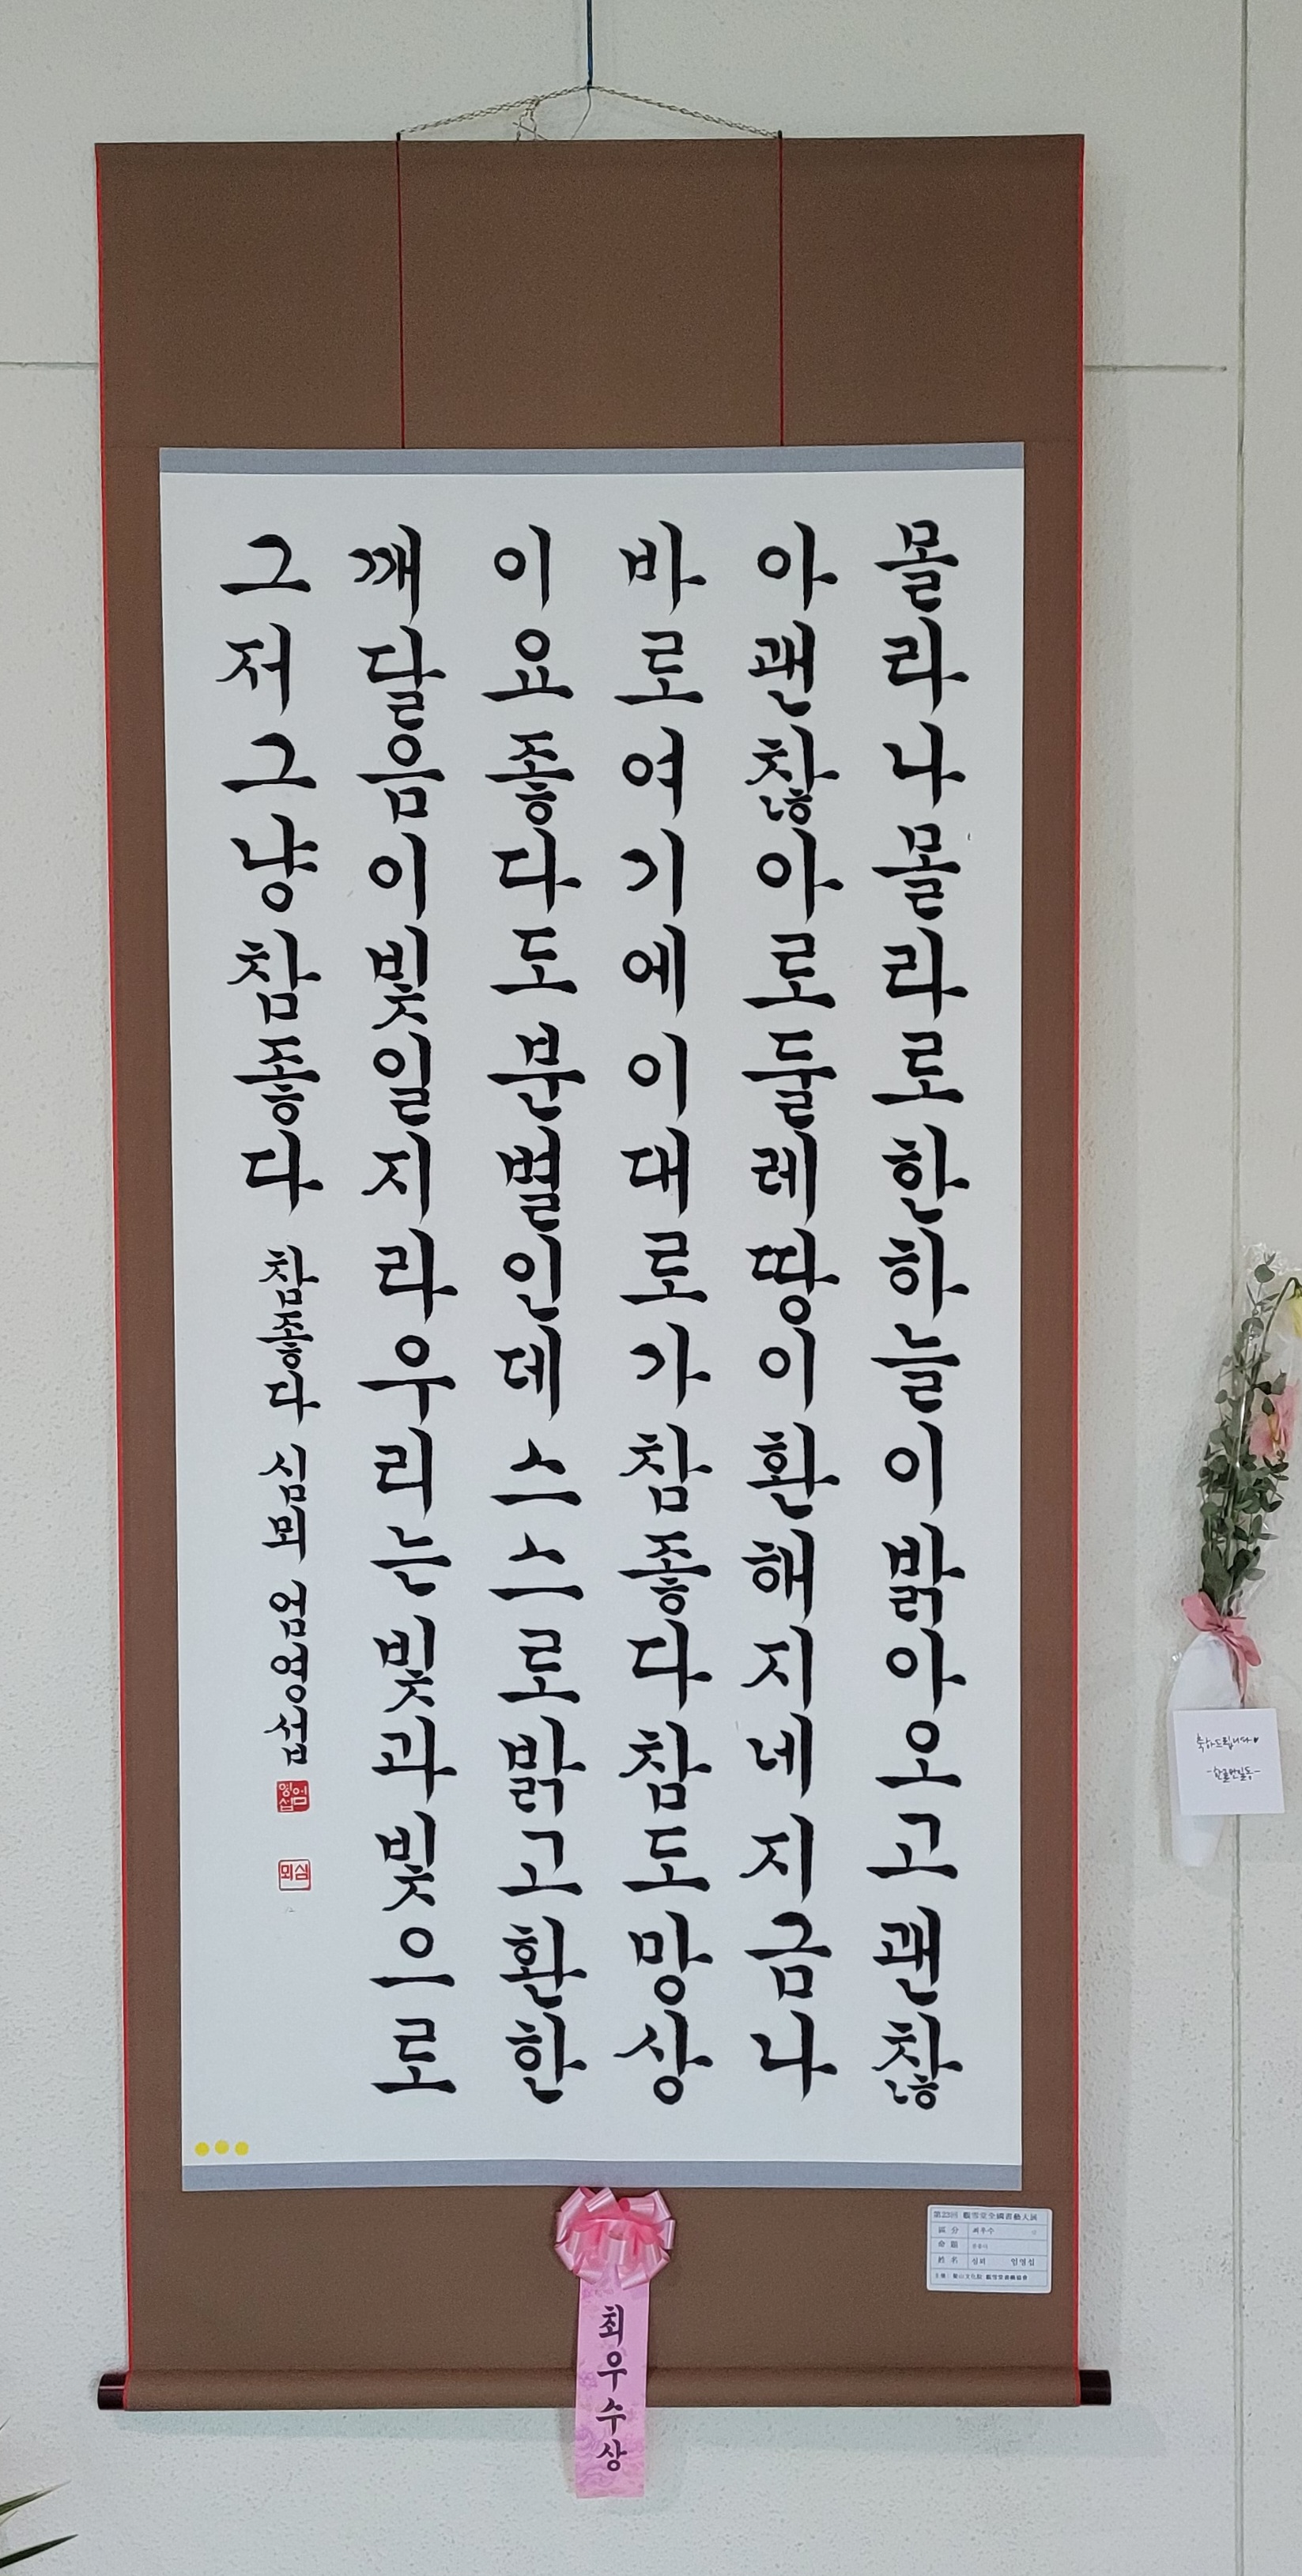 몰라나몰라로한하늘이밝아오고괜찮
아괜찮아로둘레땅이환해지네지금나
바로여기에이대로가참좋다참도망상
이요좋다도분별인데스스로밝고환한
깨달음이빛일지라우리는빛과빛으로
그저그냥참좋다 참좋다 심뫼 엄영섭
엄영섭
심뫼
최우수상
第23回 觀雪堂全國書藝大展
區分 최우수
命題 참좋다
姓名 심뫼 엄영섭
축하드립니다♥